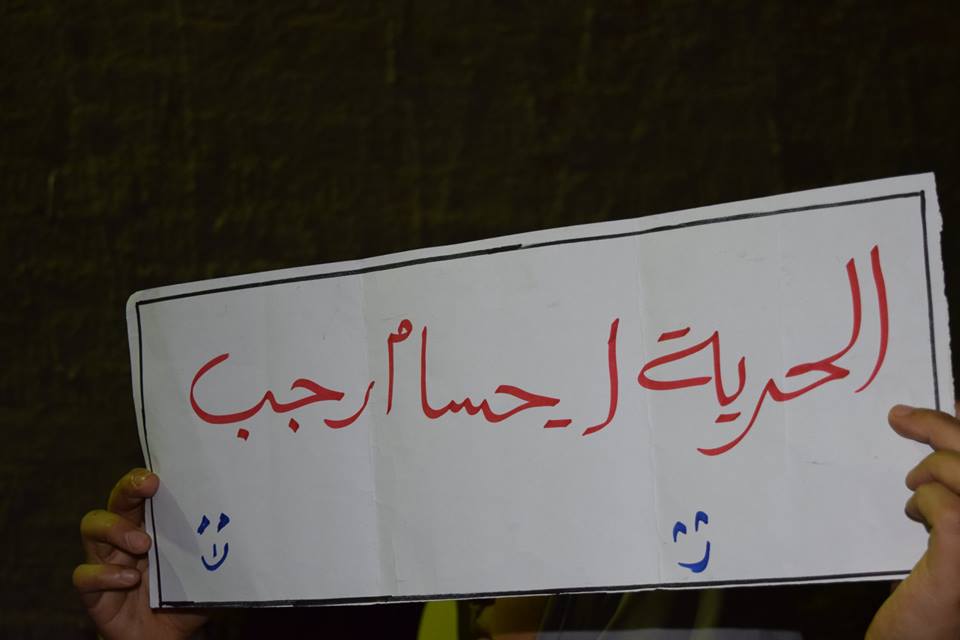 الحرية ل يحسام رجب